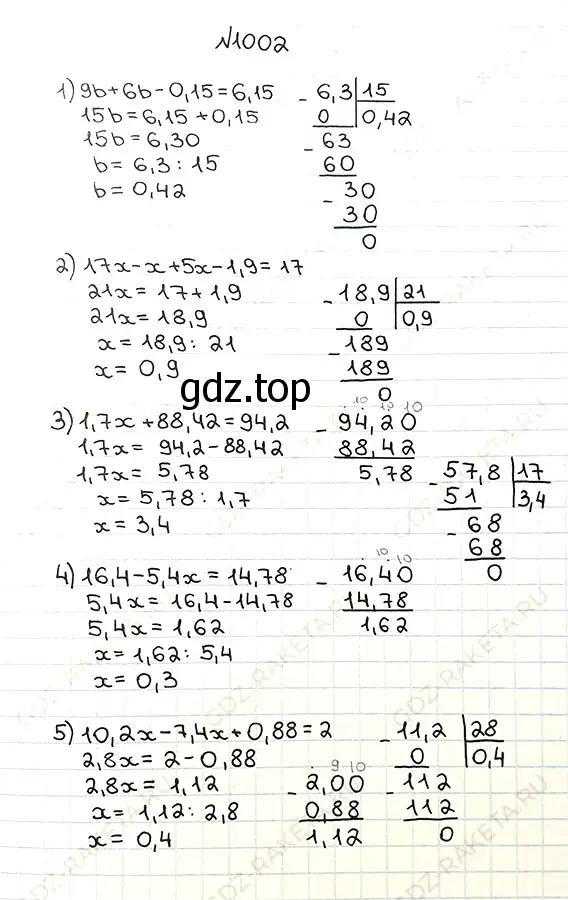 №1002
1) 9b+6b-0,15=6,15
15b=6,15+0,15
15b=6,30
b=6,3:15
b=0,42
- 6,3 15
0 0,42
- 63
60
- 30
30
0
2) 17x-x+5x-1,9=17
21x=17+1,9
21x=18,9
x=18,9:21
x=0,9
- 18,9 21
0 0,9
- 189
189
0
gdz.top
3) 1,7x+88,42=94,2
1,7x=94,2-88,42
1,7x=5,78
x=5,78:1,7
x=3,4
10 10 10
- 94,20
88,42
5,78
- 57,8 17
51 3,4
- 68
68
0
4) 16,4-5,4x=14,78
5,4x=16,4-14,78
5,4x=1,62
x=1,62:5,4
x=0,3
10 10
- 16,40
14,78
1,62
5) 10,2x-7,4x+0,88=2
2,8x=2-0,88
2,8x=1,12
x=1,12:2,8
x=0,4
9 10
- 2,00
0,88
1,12
- 11,2 28
0 0,4
- 112
112
0
GDZ-RAKETA.RU